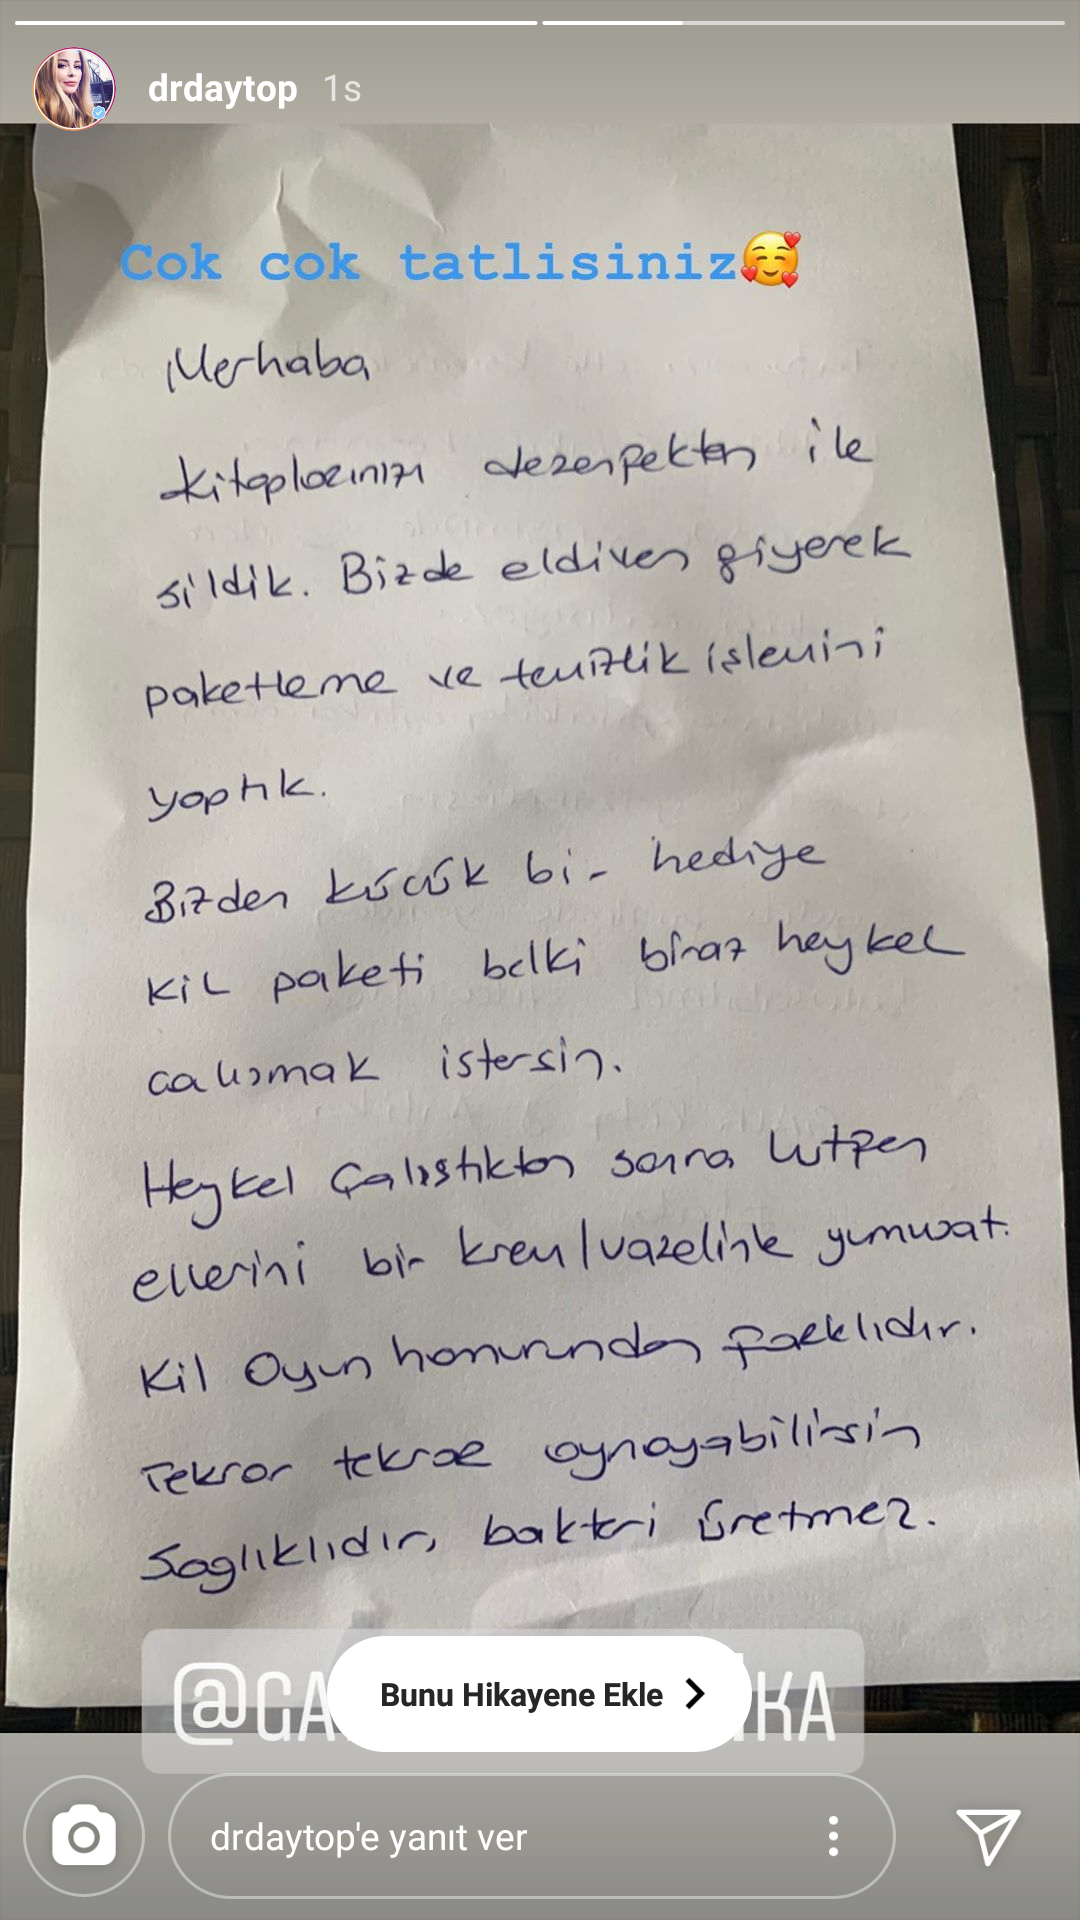 drdaytop 1s
Cok cok tatlisiniz🥰
Merhaba
Kitaplarınızı dezenfektan ile
sildik. Bizde eldiven giyerek
paketleme ve temizlik işlemini
yaptık.
Bizden küçük bir hediye
Kil paketi belki biraz heykel
calışmak istersin.
Heykel Çalıştıktan sonra Lutfen
ellerini bir krem/vazelinle yumuşat.
Kil Oyun hamurundan farklıdır.
Tekrar tekrar oynayabilirsin
Saglıklıdır, bakteri üretmez.
@GA
KA
Bunu Hikayene Ekle
drdaytop'e yanıt ver